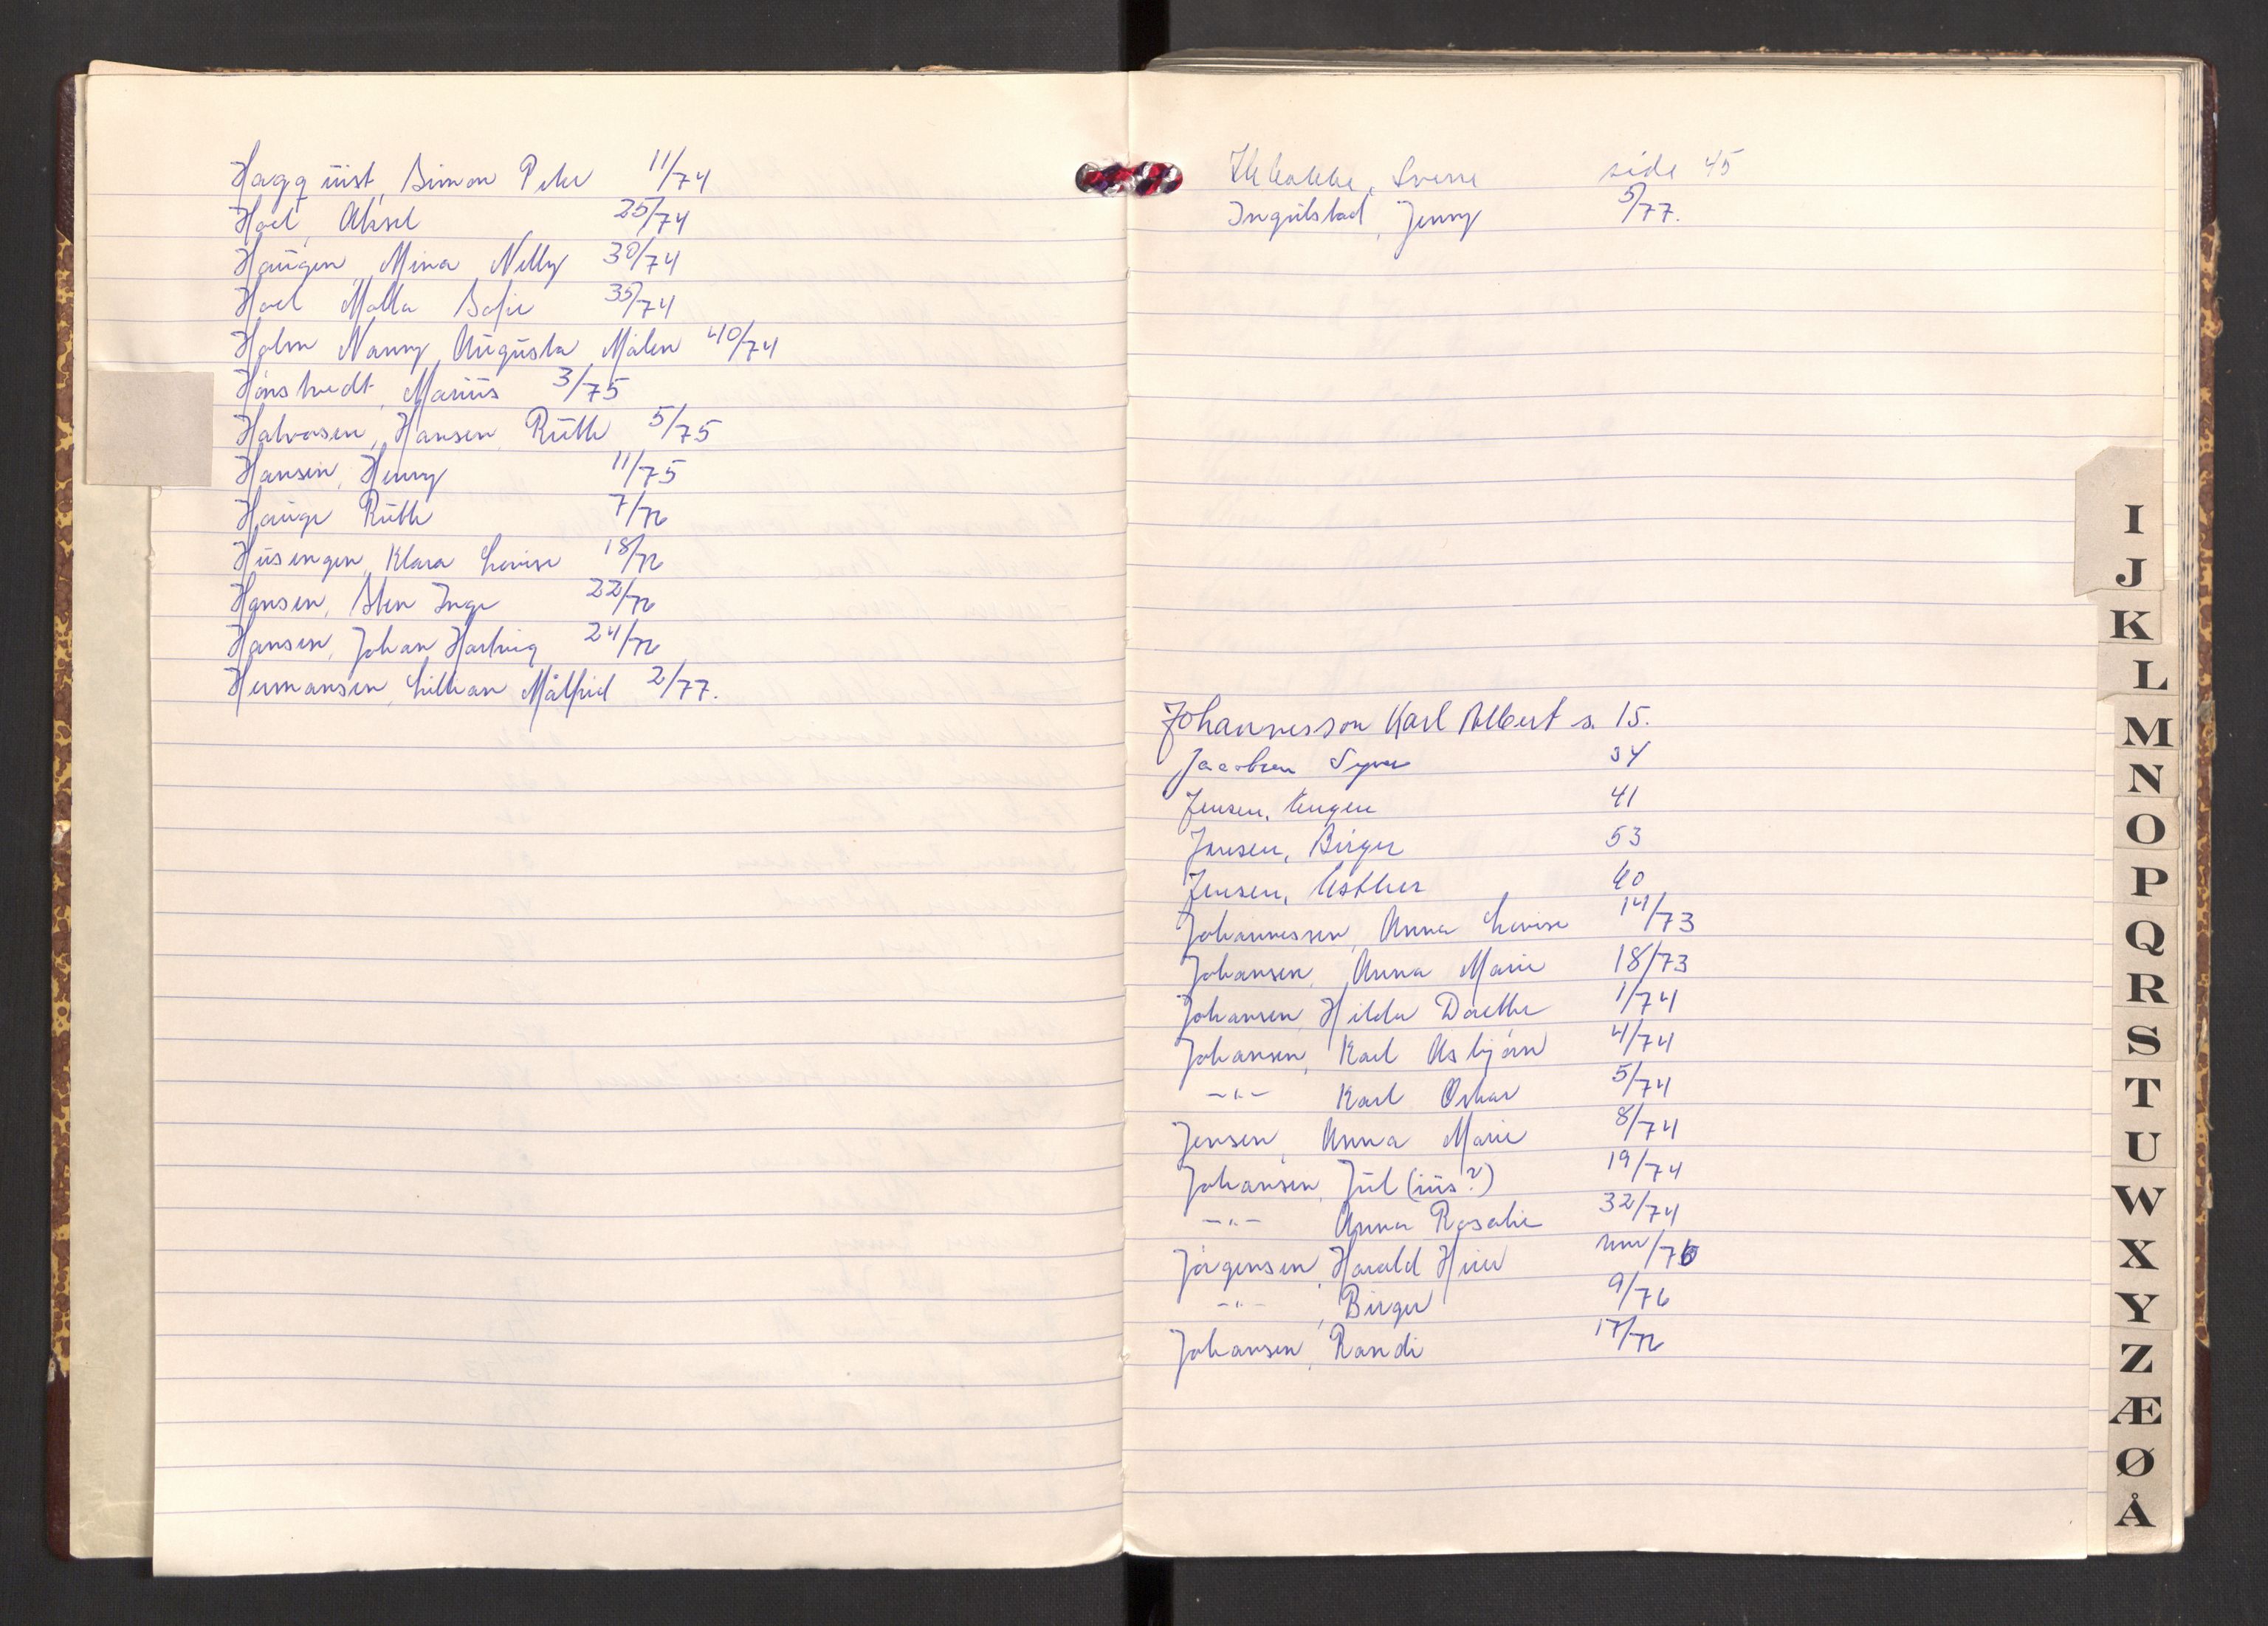 Haggquist, Simon Peter 11/74
Hoel, Aksel 25/74
Haugen, Mina Nelly 30/74
Hoel Malla Sofie 35/74
Holm Nanny Augusta Malen 40/74
Hønstvedt, Marius 3/75
Halvorsen, Hansen Ruth 5/75
Hansen, Henny 11/75
Hauge Ruth 7/76
Husengen, Klara Lovise 18/76
Hansen, Sten Inge 22/76
Hansen, Johan Hartvig 24/76
Hermansen, Lillian Målfrid 2/77.
Ihlebakke, Sverre side 45
Ingulstad, Jenny 5/77.
Johannesson Karl Albert s. 15.
Jacobsen Syver 34
Jensen, Eugen 41
Jensen, Birger 53
Jensen, Esther 60
Johannessen, Anna Lovise 14/73
Johansen, Anna Marie 18/73
Johansen, Hilda Dorthe 1/74
Johansen, Karl Asbjørn 4/74
-"- Karl Oskar 5/74
Jensen, Anna Marie 8/74
Johansen, Jul (ius?) 19/74
-"- Anna Rosalie 32/74
Jørgensen, Harald /76
-"- , Birger 9/76
Johansen, Randi 17/76
I
J
K
L
M
N
O
P
Q
R
S
T
U
W
X
Y
Z
Æ
Ø
Å